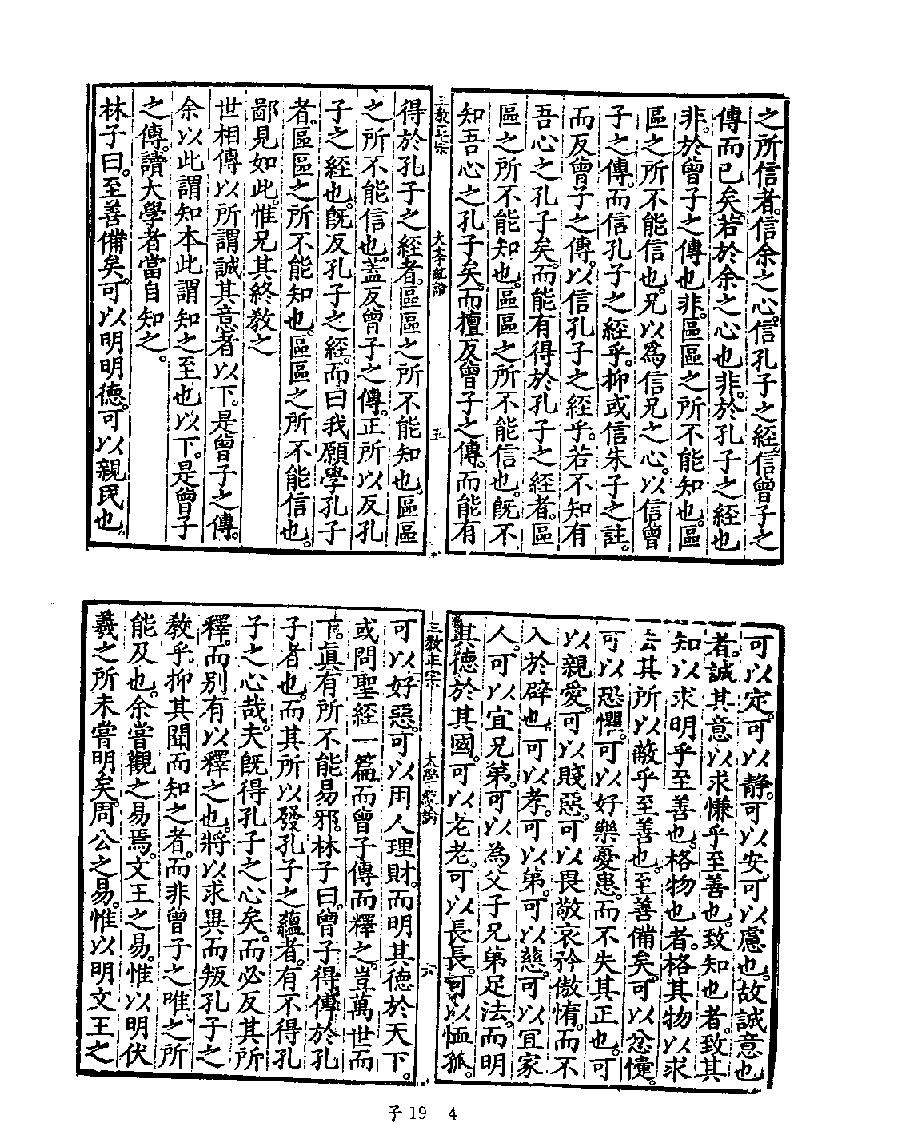 之所信者。信余之心。信孔子之經。信曾子之
傳而已矣。若於余之心也非。於孔子之經也
非。於曾子之傳也非。區區之所不能知也。區
區之所不能信也。兄以為信兄之心。以信曾
子之傳而信孔子之經乎。抑或信朱子之註。
而反曾子之傳。以信孔子之經乎。若不知有
吾心之孔子矣。而能有得於孔子之經者。區
區之所不能知也。區區之所不能信也。旣不
知吾心之孔子矣。而擅反曾子之傳。而能有
三教正宗
五
得於孔子之經者。區區之所不能知也。區區
之所不能信也。蓋反曾子之傳。正所以反孔
子之經也。旣反孔子之經。而曰我願學孔子
者。區區之所不能知也。區區之所不能信也。
鄙見如此。惟兄其終教之
世相傳以所謂誠其意者以下。是曾子之傳。
余以此謂知本此謂知之至也以下。是曾子
之傳。讀大學者當自知之。
林子曰。至善備矣。可以明明德。可以親民也。
可以定。可以靜。可以安。可以慮也。故誠意也
者。誠其意以求慊乎至善也。致知也者。致其
知以求明乎至善也。格物也者。格其物以求
去其所以蔽乎至善也。至善備矣。可以忿懥。
可以恐懼。可以好樂憂患。而不失其正也。可
以親愛。可以賤惡。可以畏敬哀矜傲惰。而不
入於辟也。可以孝。可以弟。可以慈。可以宜家
人。可以宜兄弟。可以為父子兄弟足法。而明
其德於其國。可以老老。可以長長。可以恤孤。
三教正宗
六
可以好惡。可以用人理財。而明其德於天下。
或問聖經一篇。而曾子傳而釋之。豈萬世而
下。眞有所不能易邪。林子曰。曾子得傳於孔
子者也。而其所以發孔子之蘊者。有不得孔
子之心哉。夫旣得孔子之心矣。而必反其所
釋。而別有以釋之也。將以求異而叛孔子之
教乎。抑其聞而知之者。而非曾子之唯之所
能及也。余嘗觀之易焉。文王之易。惟以明伏
羲之所未嘗明矣。周公之易。惟以明文王之
子19 4